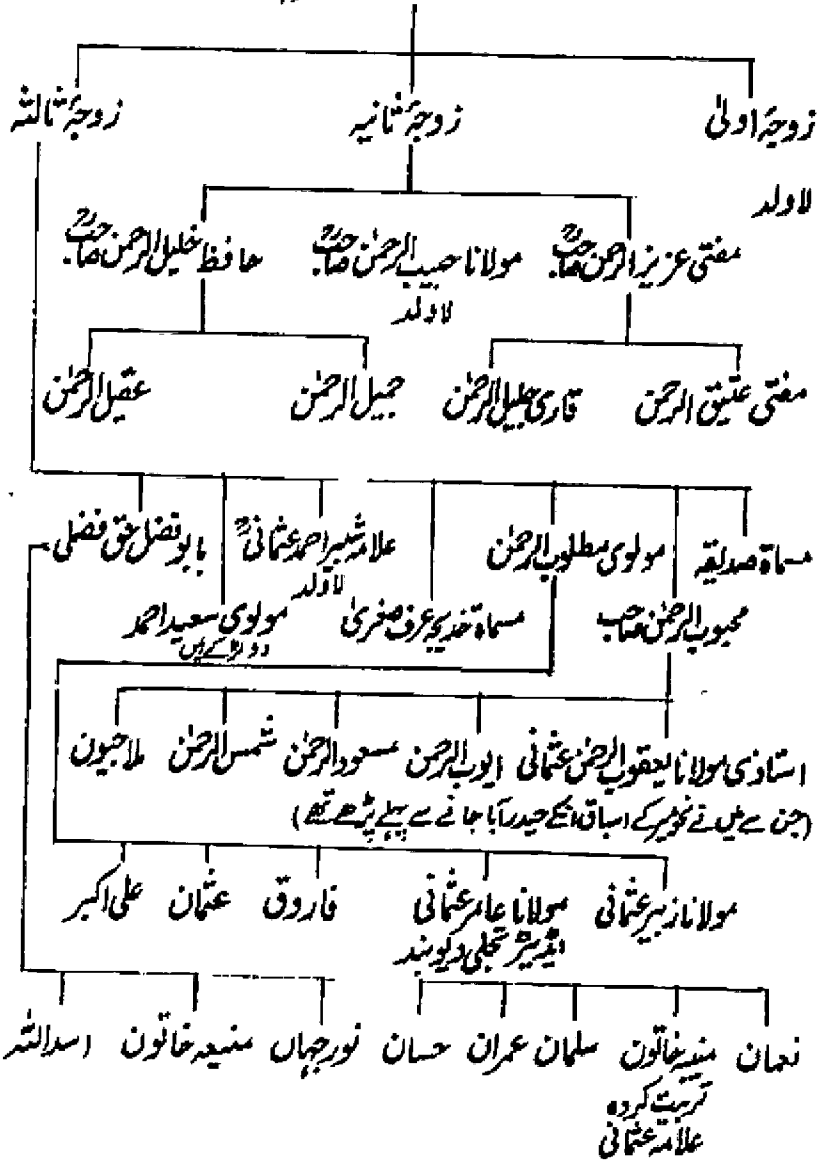 زوجۂ اولیٰ زوجۂ ثانیہ زوجۂ ثالثہ
لاولد
مفتی عزیز الرحمن صاحبؒ مولانا حبیب الرحمٰن صاحبؒ حافظ خلیل الرحمٰن صاحبؒ
لاولد
مفتی عتیق الرحمن قاری جلیل الرحمٰن جمیل الرحمٰن عقیل الرحمٰن
مسماۃ صدیقہ مولوی مطلوب الرحمٰن علامہ شبیر احمد عثمانیؒ بابو فضل حق فضلی
لاولد
محبوب الرحمٰن صاحب مسماۃ خدیجہ عرف صغریٰ مولوی سعید احمد
دو لڑکے ہیں
استاذی مولانا یعقوب الرحمٰن عثمانی ایوب الرحمٰن مسعود الرحمٰن شمس الرحمٰن ملا جیون
(جن سے میں نے نحومیر کے اسباق انکے حیدرآباد جانے سے پہلے پڑھے تھے)
مولانا زبیر عثمانی مولانا عامر عثمانی فاروق عثمان علی اکبر
ایڈیٹر تجلی دیوبند
نعمان منیبہ خاتون سلمان عمران حسان نور جہاں منیعہ خاتون اسد اللہ
تربیت کردہ
علامہ عثمانی